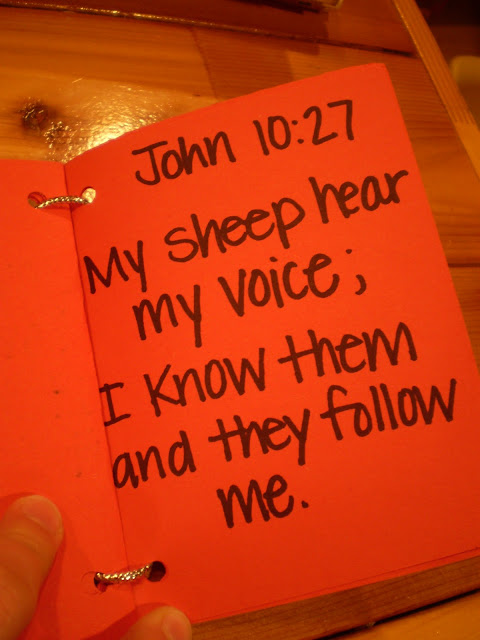 John 10:27
My sheep hear
my voice;
I know them
and they follow
me.